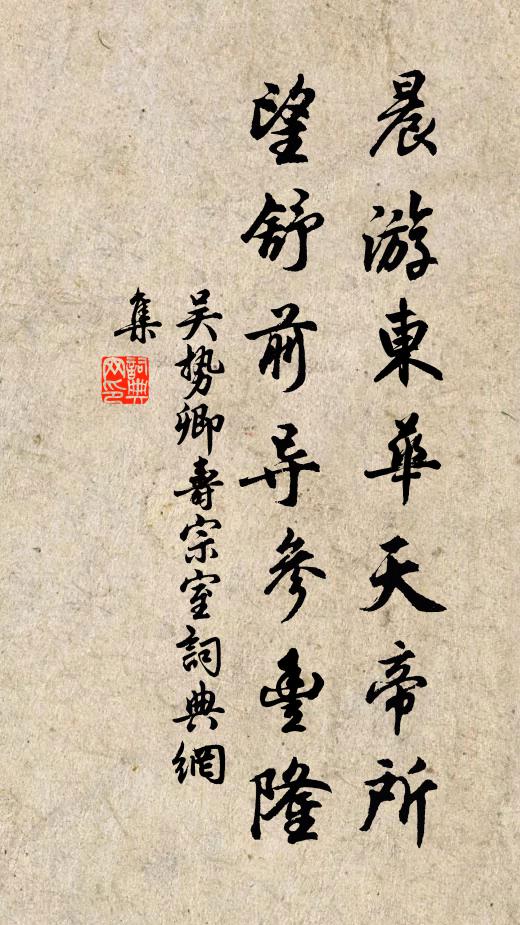 晨游東華天帝所
望舒前导參豊隆
吴势卿壽宗室詞典網
集
詞典网印